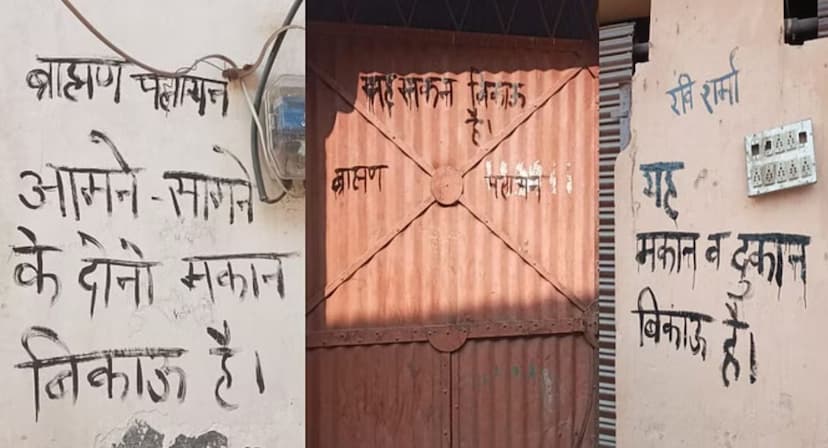 ब्राह्मण पलायन
आमने-सामने
के दोनो मकान
बिकाऊ है।
यह मकान बिकाऊ
है।
ब्राह्मण पलायन
रवि शर्मा
यह
मकान व दुकान
बिकाऊ है।